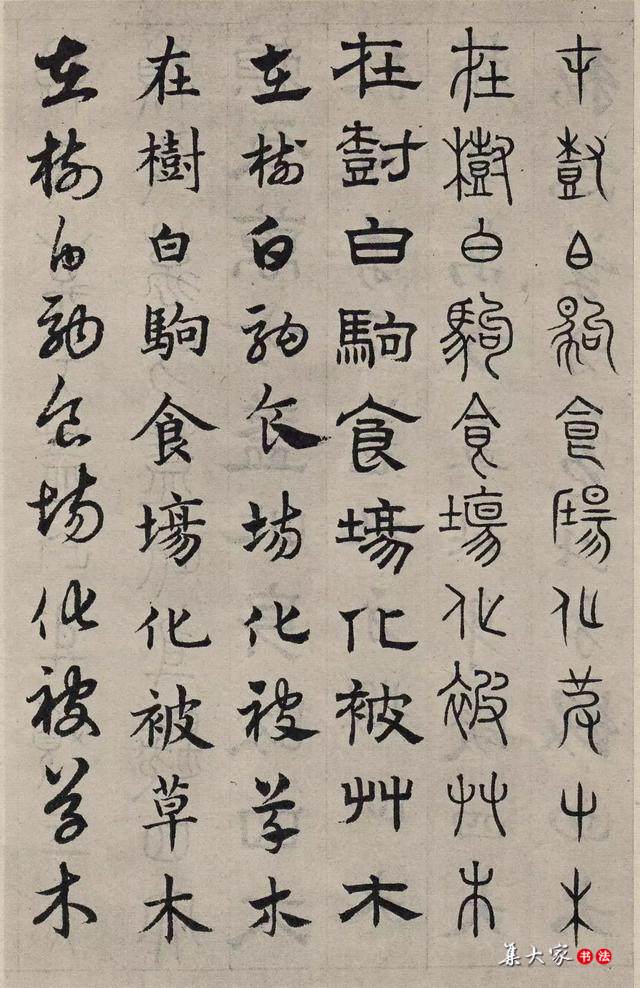 在樹白駒食場化被艸木
在樹白駒食場化被艸木
在尌白駒食場化被艸木
在樹白駒食場化被草木
在樹白駒食場化被草木
在樹白駒食場化被草木
集大家書法